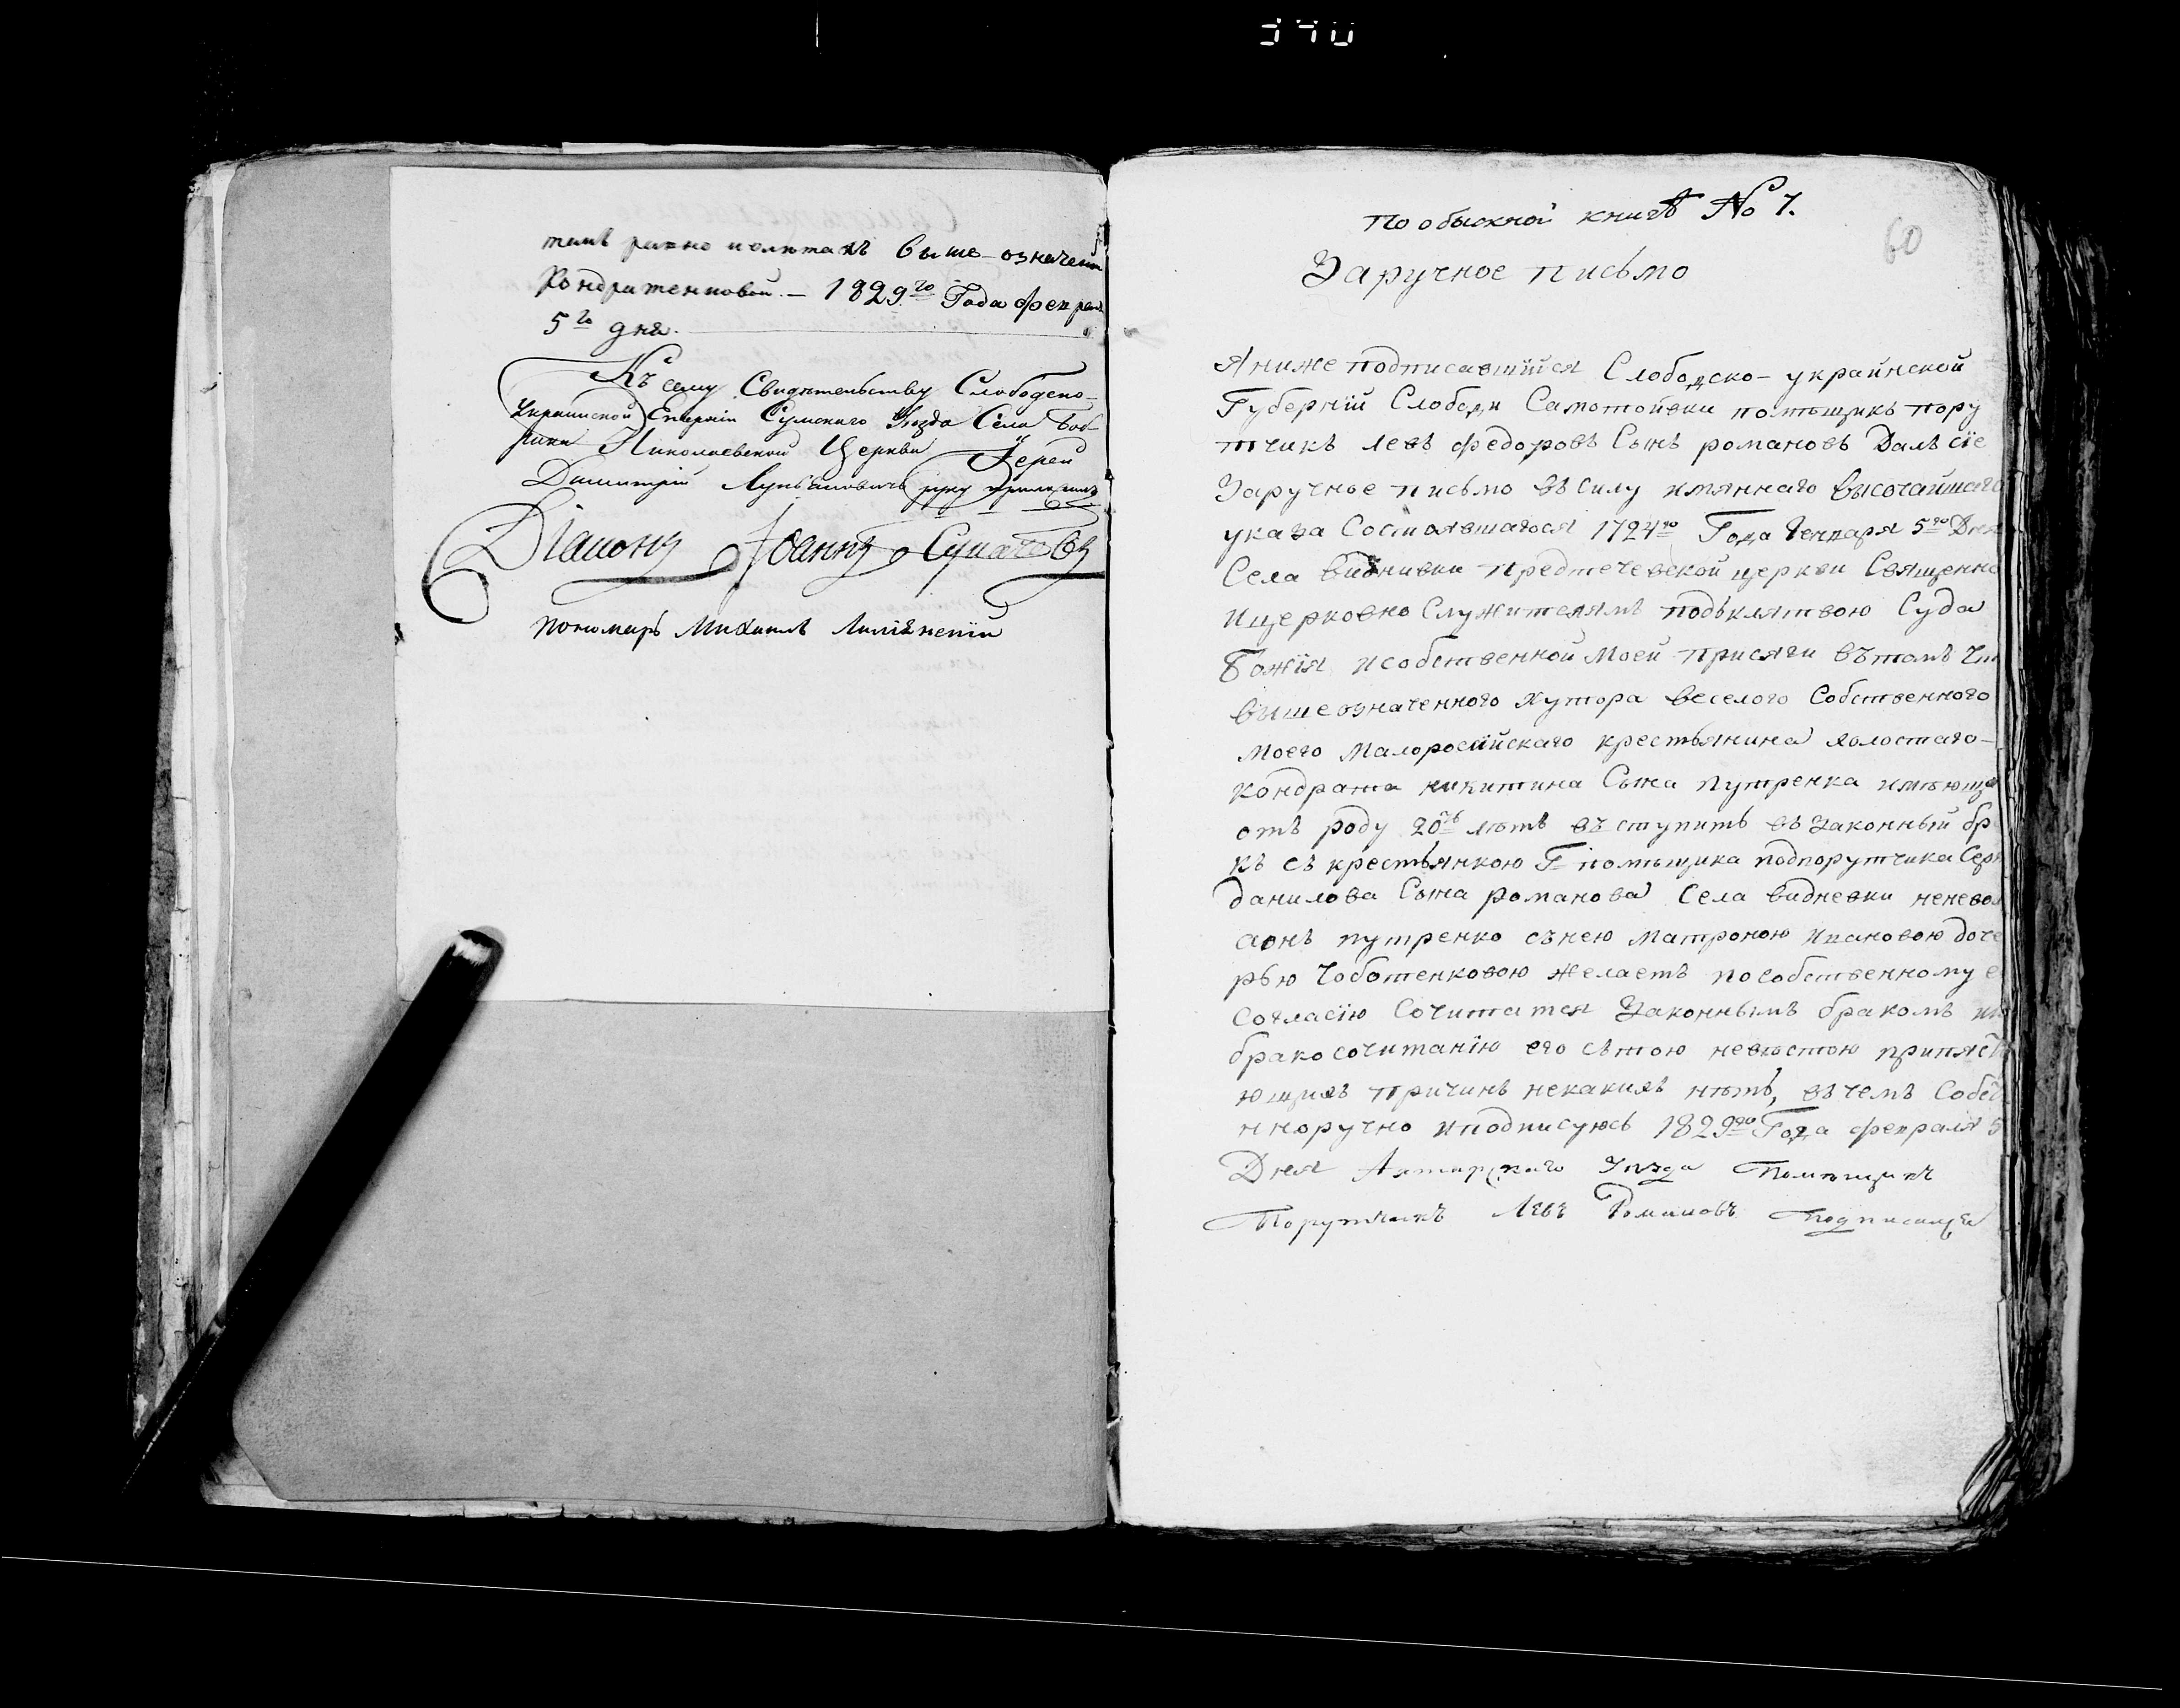 340
тамъ равно и олѣтахъ выше-означен
Кондратенковой. — 1829го Года февра
5го дня.
Къ сему Свидѣтельству Слободско-
Украинской Епархіи Сумскаго Уезда Села Боб
рика Николаевской Церкви Іерей
Димитрій руку приложилъ
Діаконъ Іоаннъ
Пономарь Михаилъ
По обыскной книгѣ № 7.
60
Заручное письмо
Я ниже подписавшійся Слободско-украйнской
Губерніи Слободи Самотойвки помѣщикъ пору
тчикъ левъ федоровъ Сынъ романовъ Далъ сіе
Заручное письмо въ силу имяннаго высочайшаго
указа Состоявшагося 1724го Года Генваря 5го Дня
Села виднивки предтечевской церкви Священно
и церковно Служителямъ подъ клятвою Суда
Божія и собственной Моей присяги въ томъ что
вышеозначенного хутора веселого Собственного
Моего Малоросійскаго крестьянина холостаго-
кондрата никитина Сына путренка имѣюща
отъ роду 20ть лѣтъ въступить въ Законный бр
къ съ крестьянкою Г помѣщика подпорутчика Сер
данилова Сына романова Села видневки неневол
а онъ путренко съ нею матроною ивановою доче
рью Чоботенковою желаетъ по собственному е
Согласію Сочитатся Законнымъ бракомъ и
бракосочитанію его сътою невѣстою припяст
ющихъ причинъ некакихъ нѣтъ, въ чемъ Собст
нноручно и подписуюсь 1829го Года февраля 5
Дня Ахтирскаго Уѣзда Помѣщикъ
Порутчикъ Левъ Романовъ подписался